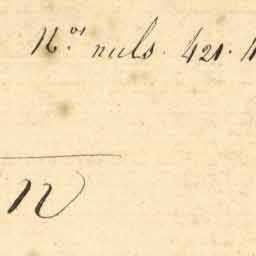 N.os nuls. 421. 4
N